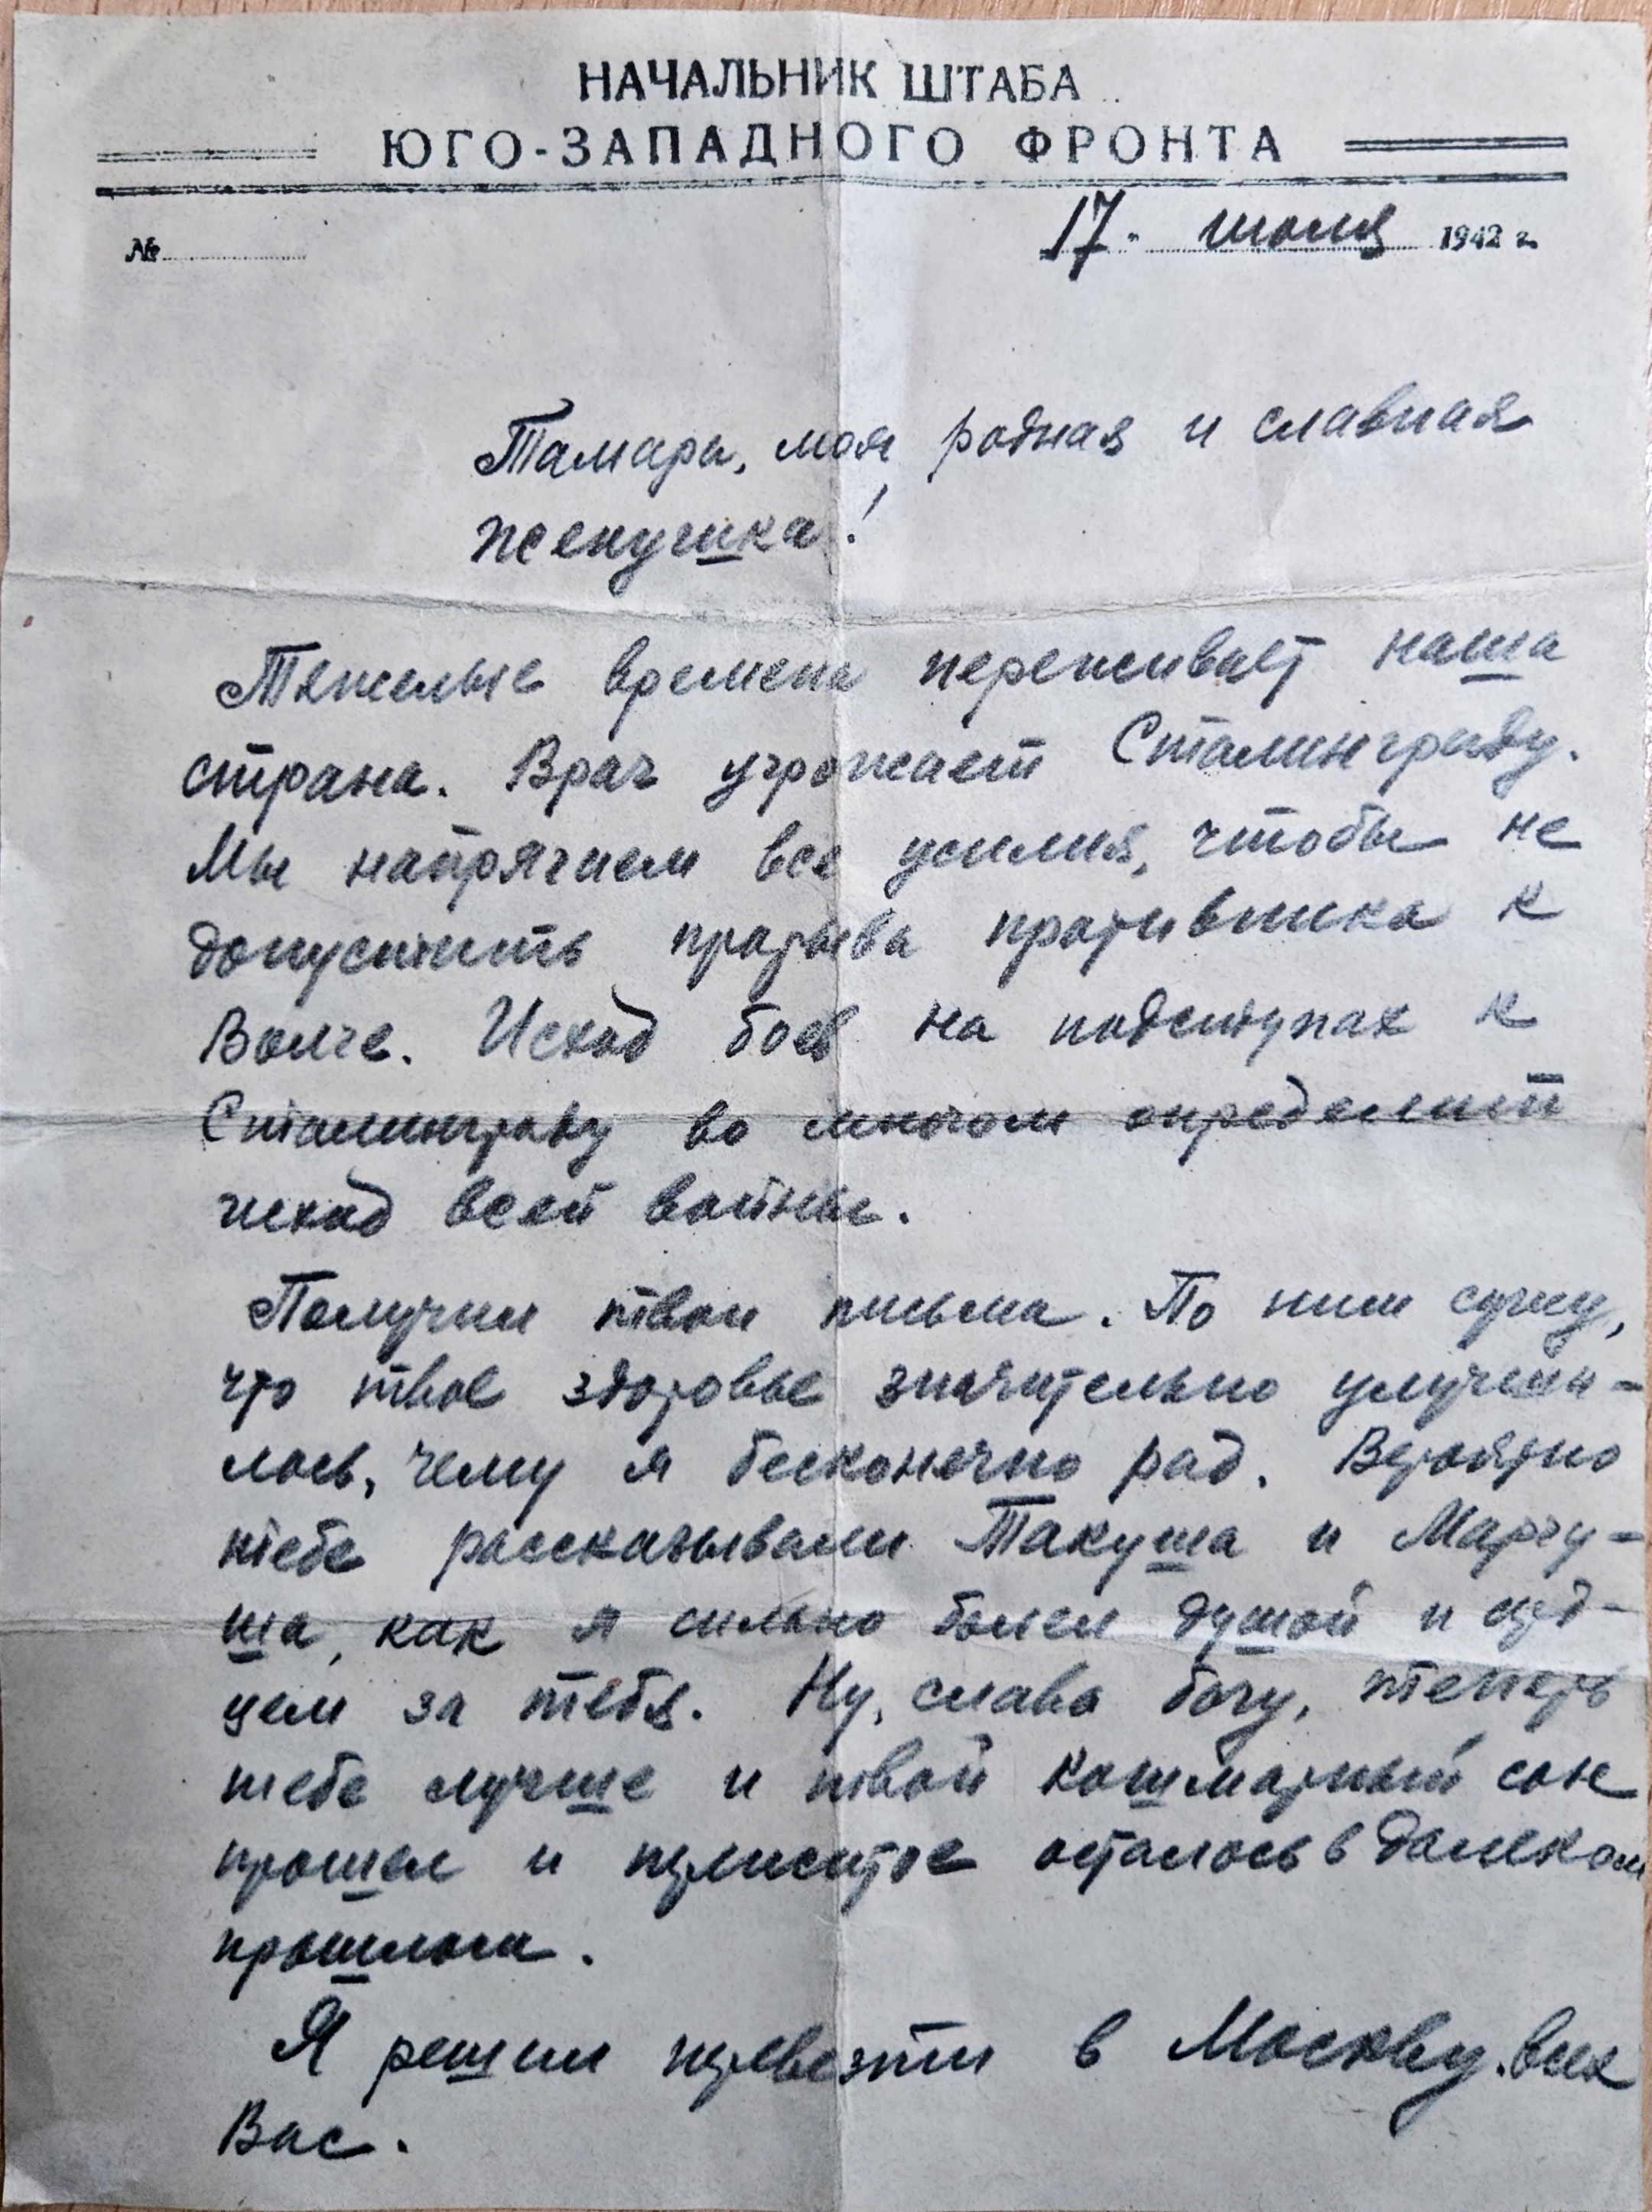 НАЧАЛЬНИК ШТАБА
ЮГО-ЗАПАДНОГО ФРОНТА
№
17 июля 1942 г.
Тамара, моя родная и славная
женушка!
Тяжелые времена переживает наша
страна. Враг угрожает Сталинграду.
Мы напрягаем все усилия, чтобы не
допустить прорыва противника к
Волге. Исход боев на подступах к
Сталинграду во многом определит
исход всей войны.
Получил твои письма. По ним сужу,
что твое здоровье значительно улучши-
лось, чему я бесконечно рад. Вероятно
тебе рассказывали Такуша и Маргу-
ша, как я сильно болел душой и серд-
цем за тебя. Ну, слава богу, теперь
тебе лучше и твой кошмарный сон
прошел и пережитое осталось в далеком
прошлом.
Я решил перевезти в Москву всех
Вас.